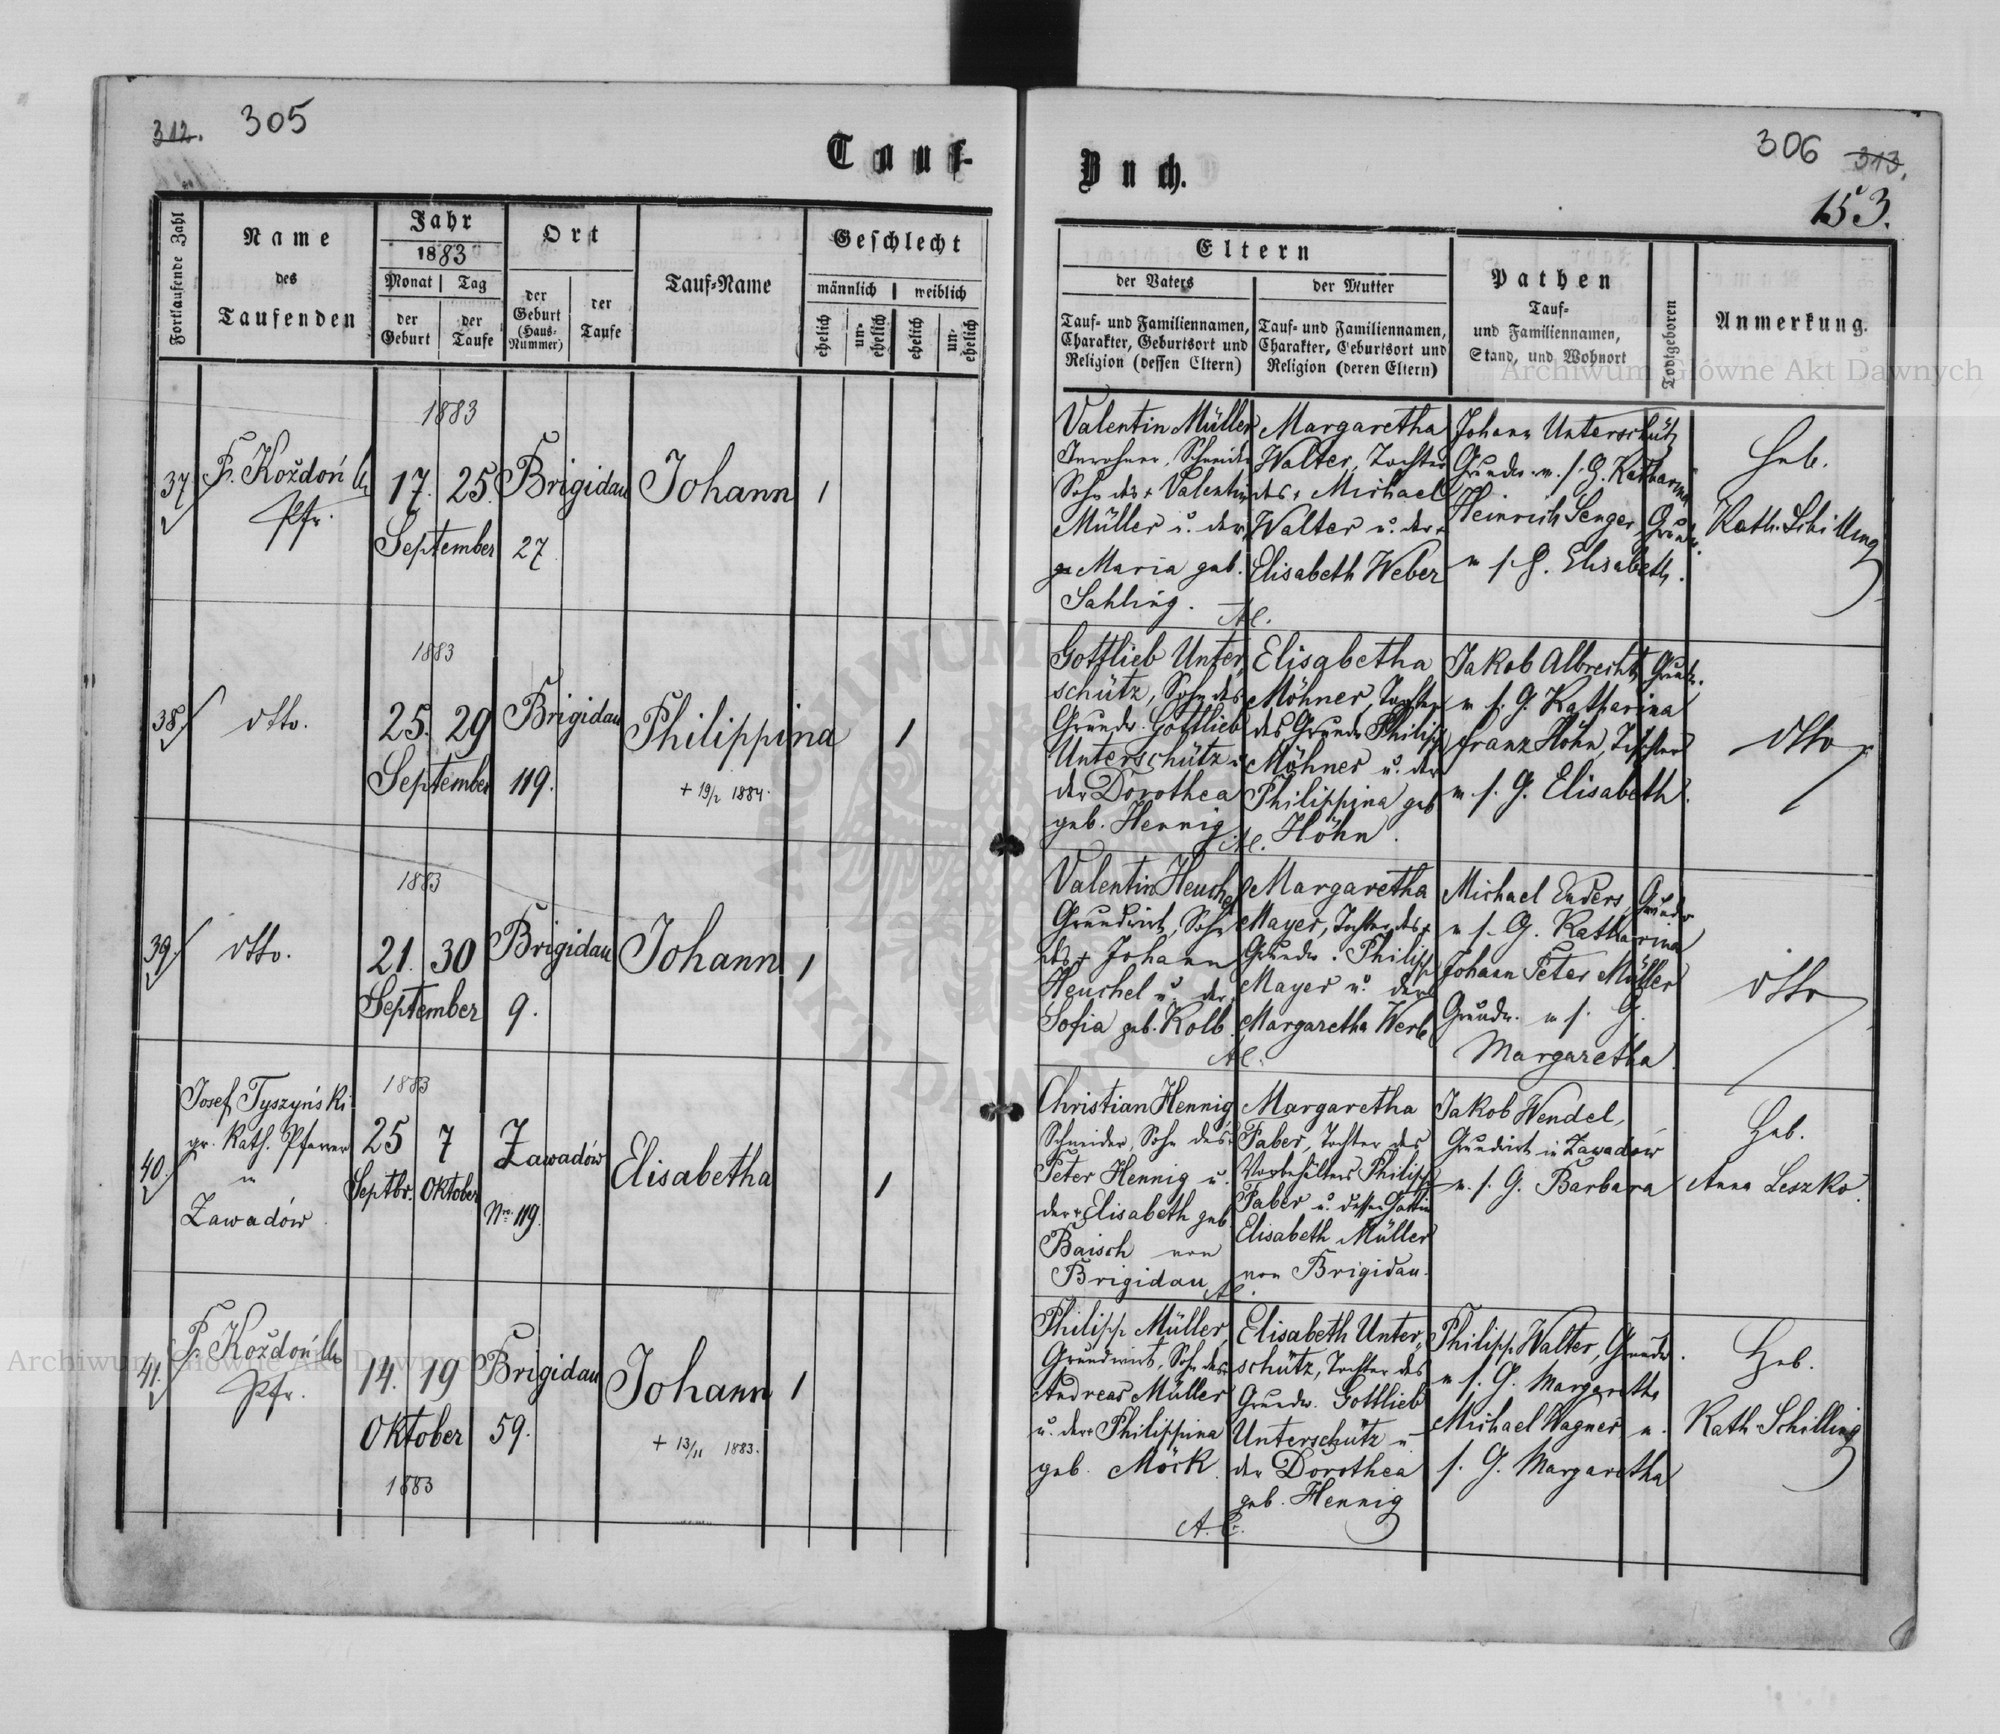 312. 305
Tauf-
Fortlaufende Zahl
Name
des
Taufenden
Jahr
1883
Monat Tag
der
Geburt
der
Taufe
Ort
der
Geburt
(Haus-
Nummer)
der
Taufe
Tauf-Name
Geschlecht
männlich weiblich
ehelich
un-
ehelich
ehelich
un-
ehelich
37
F. Koždoń
Pfr.
1883
17. 25.
September
Brigidau
27
Johann
1
38
dtto.
1883
25. 29
September
Brigidau
119.
Philippina
+ 19/2 1884.
1
39.
dtto.
1883
21. 30
September
Brigidau
9.
Johann
1
40.
Josef Tyszyński
gr. kath. Pfarrer
in
Zawadów
1883
25 7
Septbr. Oktober
Zawadów
Nro. 119.
Elisabetha
1
41.
F. Koždoń
Pfr.
14. 19
Oktober
1883
Brigidau
59.
Johann
+ 13/11 1883.
1
306 313.
153.
Buch.
Eltern
der Vaters
Tauf- und Familiennamen,
Charakter, Geburtsort und
Religion (dessen Eltern)
der Mutter
Tauf- und Familiennamen,
Charakter, Geburtsort und
Religion (deren Eltern)
Pathen
Tauf-
und Familiennamen,
Stand, und Wohnort
Todtgeboren
Anmerkung.
Valentin Müller
Inwohner, Schneider
Sohn des + Valentin
Müller u. der
Maria geb.
Sahling.
Margaretha
Walter, Tochter
des + Michael
Walter u. der +
Elisabeth Weber
Johann Unterschütz
Grundw. m. s. G. Katharina
Heinrich Senger, Grundw.
m s. G. Elisabeth.
Heb.
Kath. Schilling
Gottlieb Unter-
schütz, Sohn des
Grundw. Gottlieb
Unterschütz u
der Dorothea
geb. Hennig
Elisabetha
Möhner, Tochter
des Grundw Philipp
Möhner u. der
Philippina geb
Höhn.
Jakob Albrecht, Grundw.
m s. G. Katharina
Franz Höhn, Tischler
m. s. G. Elisabeth.
dtto
Valentin Heuchel
Grundwirt, Sohn
des + Johann
Heuchel u. der
Sofia geb. Kolb.
Margaretha
Mayer, Tochter des +
Grundw. Philipp
Mayer u. der
Margaretha Werb
Michael Enders, Grundw
m s. G. Katharina
Johann Peter Müller
Grundw. m s. G.
Margaretha.
dtto
Christian Hennig
Schneider, Sohn des
Peter Hennig u.
der + Elisabeth geb.
Baisch von
Brigidau
Margaretha
Faber, Tochter des
Vorbehälters Philipp
Faber u. dessen Gattin
Elisabeth Müller
von Brigidau.
Jakob Wendel,
Grundwirt in Zawadów
m. s. G. Barbara
Heb.
Anna Leszko.
Philipp Müller,
Grundwirt, Sohn des
Andreas Müller
u. der + Philippina
geb. Möck.
Elisabeth Unter-
schütz, Tochter des
Grundw. Gottlieb
Unterschütz u
der Dorothea
geb. Hennig
A. C.
Philipp Walter, Grundw.
m s. G. Margaretha
Michael Wagner u.
s. G. Margaretha
Heb.
Kath. Schilling
Archiwum Główne Akt Dawnych
Archiwum Główne Akt Dawnych